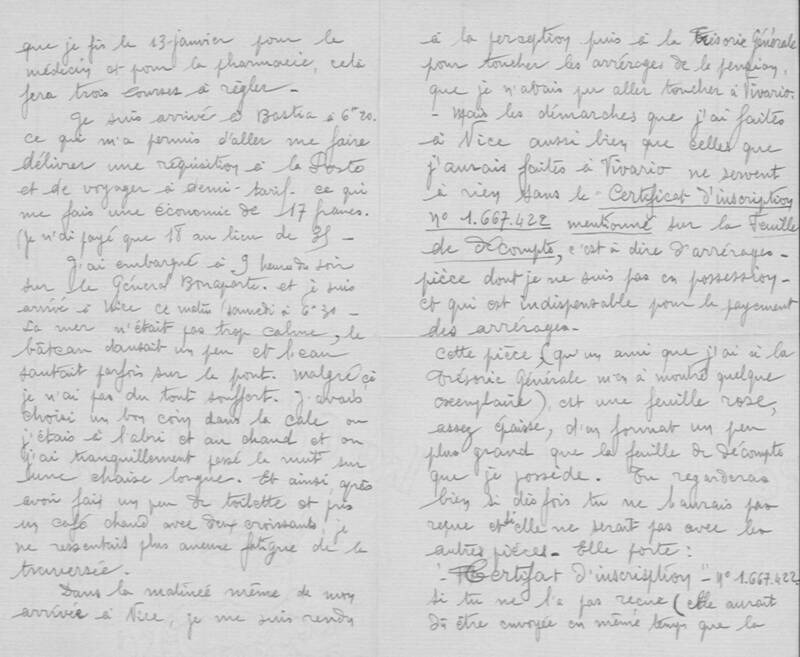 que je fis le 13 janvier pour le
médecin et pour la pharmacie, cela
fera trois courses à régler _
Je suis arrivé à Bastia à 6h20.
ce qui m'a permis d'aller me faire
délivrer une réquisition à la Poste
et de voyager à demi-tarif - ce qui
me fais une économie de 17 francs.
(Je n'ai payé que 18 au lieu de 35 -
J'ai embarqué à 9 heures du soir
sur le Général Bonaparte. et je suis
arrivé à Nice ce matin (samedi à 6h30 -
La mer n'était pas trop calme, le
bâteau dansait un peu et l'eau
sautait parfois sur le pont. malgré ça
je n'ai pas du tout souffert. J'avais
choisi un bon coin dans la cale ou
j'étais à l'abri et au chaud et ou
j'ai tranquillement passé la nuit sur
une chaise longue. Et ainsi, après
avoir fait un peu de toilette et pris
un café chaud avec deux croissants, je
ne ressentais plus aucune fatigue de la
traversée.
Dans la matinée même de mon
arrivée à Nice, je me suis rendu
à la perception puis à la Trésorie Générale
pour toucher les arrérages de la pension,
que je n'avais pu aller toucher à Vivario.
- Mais les démarches que j'ai faites
à Nice aussi bien que celles que
j'aurais faites à Vivario ne servent
à rien sans le Certificat d'inscription
n° 1.667.422 mentionné sur la Feuille
de décompte, c'est à dire d'arrérages -
pièce dont je ne suis pas en possession -
et qui est indispensable pour le payement
des arrérages -
Cette pièce (qu'un ami que j'ai à la
Trésorie Générale m'en a montré quelque
exemplaire), est une feuille rose,
assez épaisse, d'un format un peu
plus grand que la feuille de décompte
que je possède. Tu regarderas
bien si dès fois tu ne l'aurais pas
reçue et si elle ne serait pas avec les
autres pièces - Elle porte :
"Certifat d'inscription" - n° 1.667.422
si tu ne l'a pas reçue (elle aurait
dû être envoyée en même temps que la